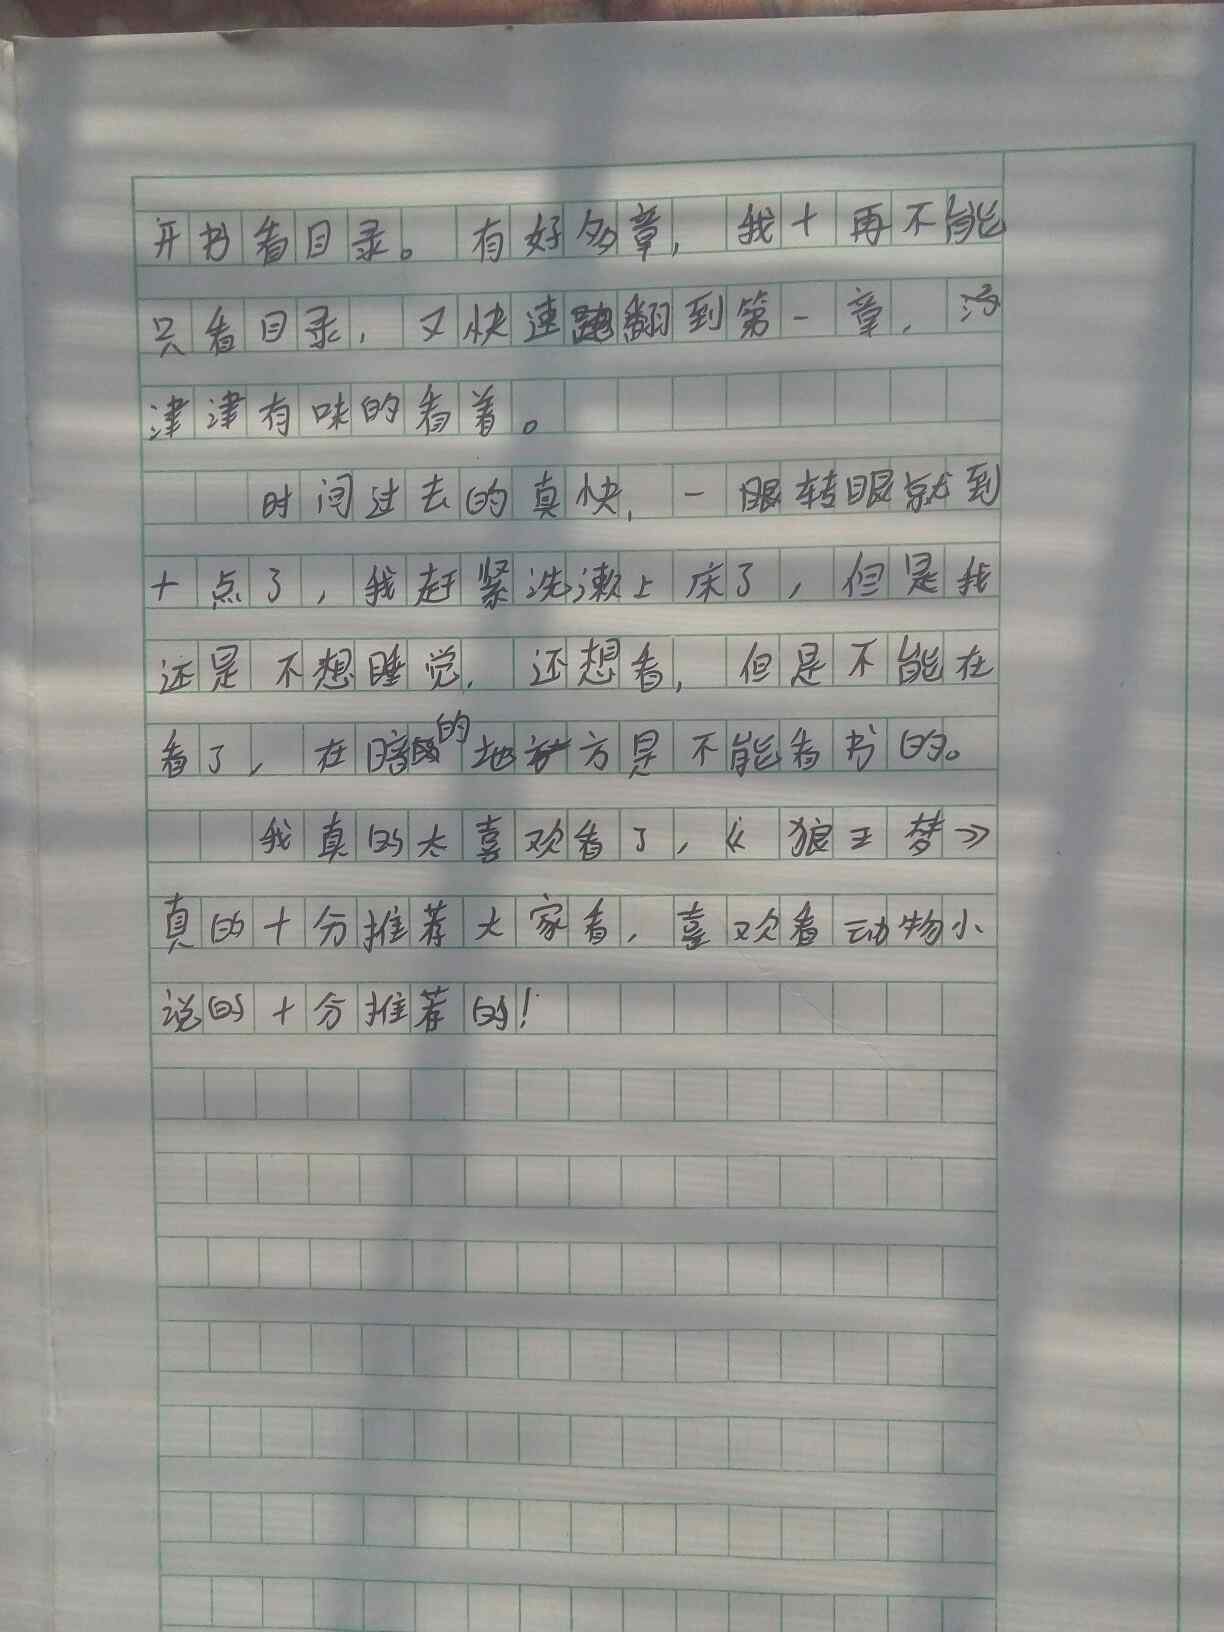 开书看目录。有好多章,我十再不能
只看目录,又快速跑翻到第一章,
津津有味的看着。
时间过去的真快,一眼转眼就到
十点了,我赶紧洗漱上床了,但是我
还是不想睡觉,还想看,但是不能在
看了,在暗的地方是不能看书的。
我真的太喜欢看了,《狼王梦》
真的十分推荐大家看,喜欢看动物小
说的十分推荐的!